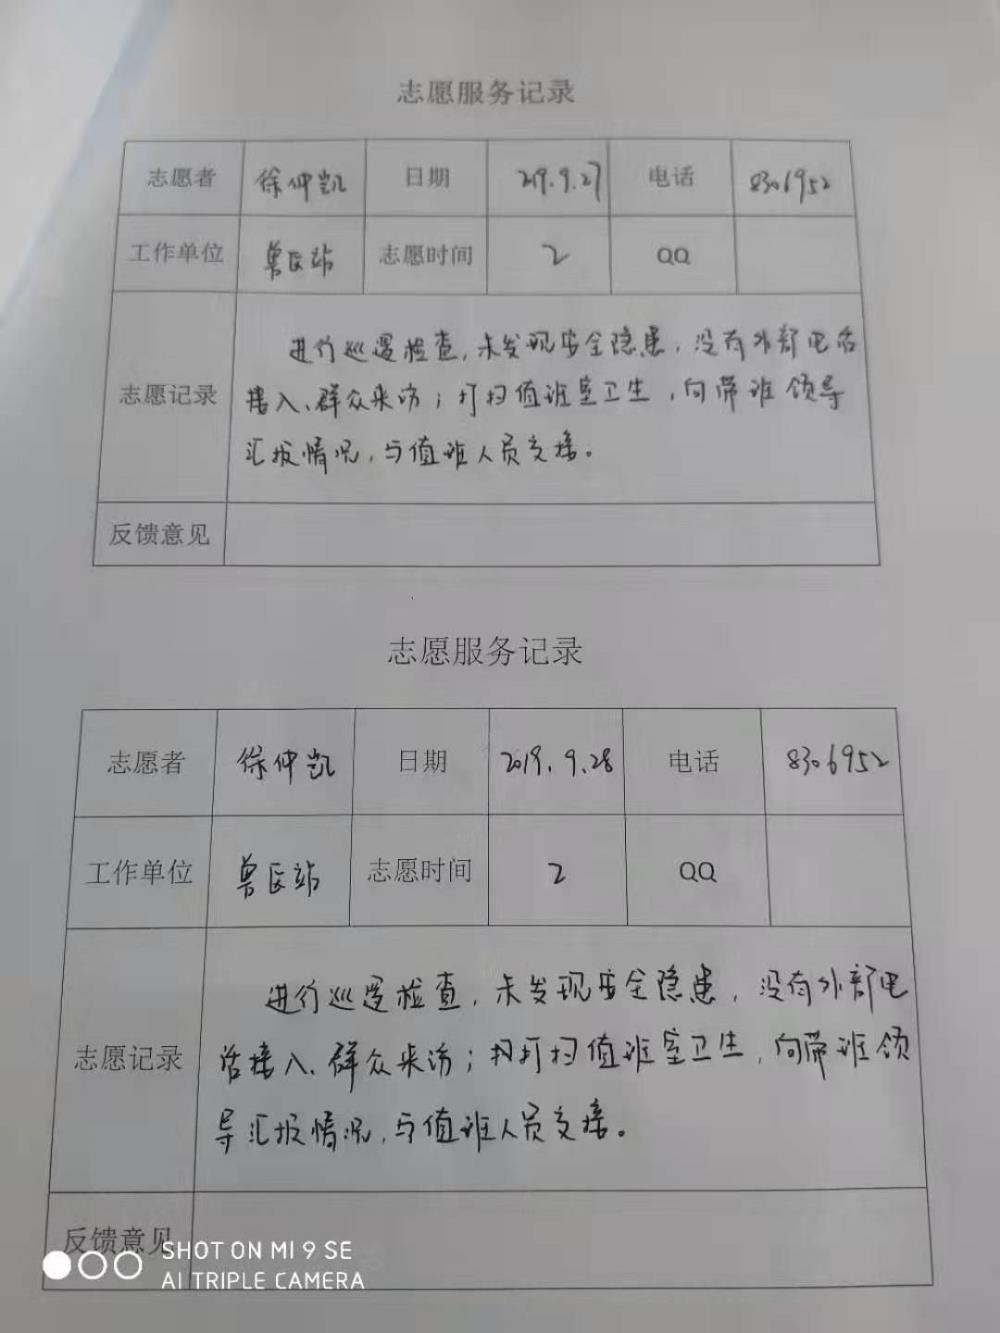 志愿服务记录
志愿者 徐仲凯 日期 219.9.27 电话 8306952
工作单位 兽医站 志愿时间 2 QQ
进行巡逻检查，未发现安全隐患，没有外部电话
志愿记录 接入、群众来访；打扫值班室卫生，向带班领导
汇报情况，与值班人员交接。
反馈意见
志愿服务记录
志愿者 徐仲凯 日期 2019.9.28 电话 8306952
工作单位 兽医站 志愿时间 2 QQ
进行巡逻检查，未发现安全隐患，没有外部电
志愿记录 话接入、群众来访；打扫值班室卫生，向带班领
导汇报情况，与值班人员交接。
反馈意见
SHOT ON MI 9 SE
AI TRIPLE CAMERA